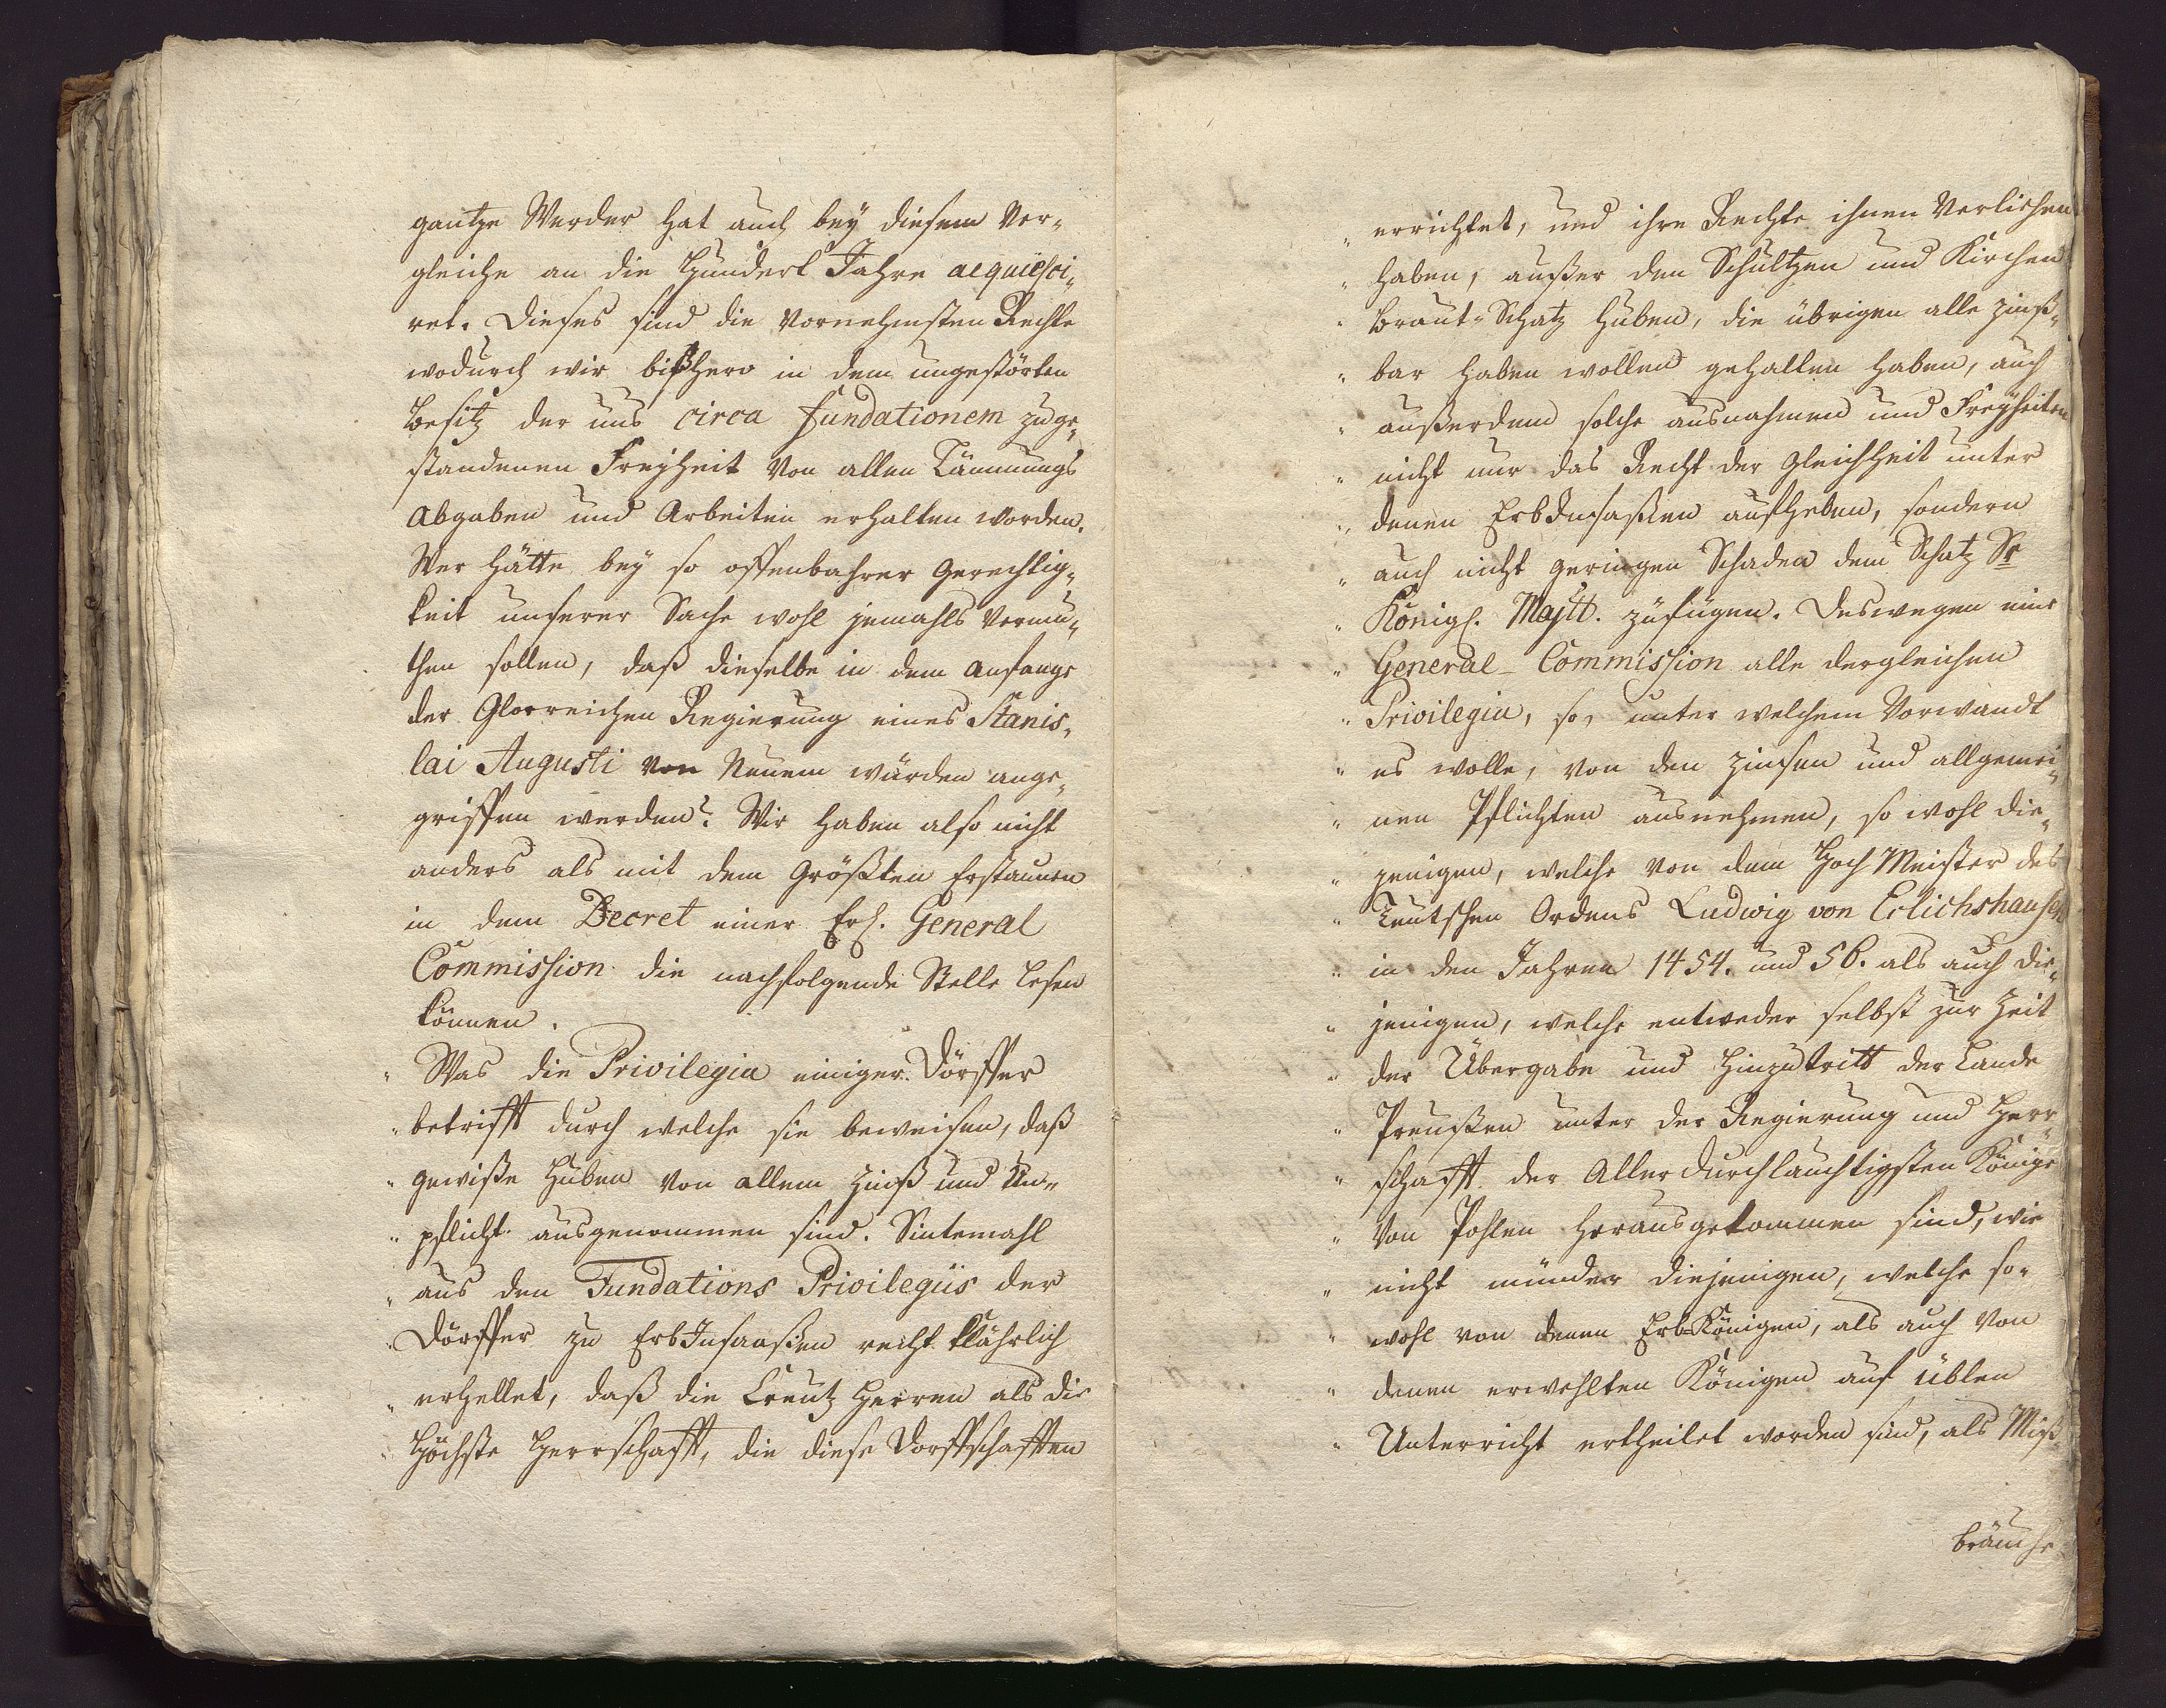 gantze Werder hat auch bey diesem Ver-
gleiche an die Hundert Jahre acquiesci-
ret. Dieses sind die Vornehmsten Rechte
wodurch wir bißhero in dem ungestörten
Besitz der uns circa fundationem zuge-
standenen Freyheit von allen Dämmungs
Abgaben und Arbeiten erhalten worden.
Wer hätte bey so offenbahrer Gerechtig-
keit unserer Sache wohl jemahls vermu-
then sollen, daß dieselbe in dem Anfange
der Glorreichen Regierung eines Stanis-
lai Augusti von Neuem würden ange-
griffen werden? Wir haben also nicht
anders als mit dem Größten Erstaunen
in dem Decret einer Erl. General
Commission die nachfolgende Stelle lesen
können.
" Was die Privilegia einiger Dörffer
" betrifft durch welche sie beweisen, daß
" gewiße Huben von allem Zinß und Un-
" pflicht ausgenommen sind. Sintemahl
" aus den Fundations Privilegiis der
" Dörffer zu ErbInsaaßen recht klährlich
" erhellet, daß die Creutz Herren als die
" Höchste Herrschafft, die diese Dorffschafften
" errichtet, und ihre Rechte ihnen Verliehen
" haben, außer den Schultzen und Kirchen
" Braut-Schatz Huben, die übrigen alle zinß-
" bar haben wollen gehalten haben, auch
" außerdem solche ausnahmen und Freyheiten
" nicht nur das Recht der Gleichheit unter
" denen ErbInsaßen aufheben, sondern
" auch nicht geringen Schaden dem Schatz Sr
" Königl. Majtt. zufügen. Deswegen eine
" General-Commission alle dergleichen
" Privilegia, so, unter welchem Vorwandt
" es wolle, von den Zinsen und allgemei-
" nen Pflichten ausnehmen, so wohl die-
" jenigen, welche von dem Hoch Meister des
" Teutschen Ordens Ludwig von Erlichshausen
" in den Jahren 1454. und 56. als auch die-
" jenigen, welche entweder selbst zur Zeit
" der Übergabe und Hinzutritt der Lande
" Preußen unter der Regierung und Herr-
" schafft der Allerdurchlauchtigsten Könige
" Von Pohlen herausgekommen sind, wie
" nicht münder diejenigen, welche so-
" wohl von denen Erb-Königen, als auch von
" denen erwehlten Königen auf üblen
" Unterricht ertheilet worden sind, als Miß-
bräuche